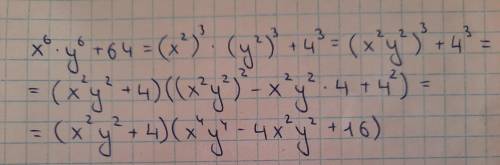 x⁶ · y⁶ + 64 = (x²)³ · (y²)³ + 4³ = (x²y²)³ + 4³ =
= (x²y² + 4)((x²y²)² - x²y² · 4 + 4²) =
= (x²y² + 4)(x⁴y⁴ - 4x²y² + 16)